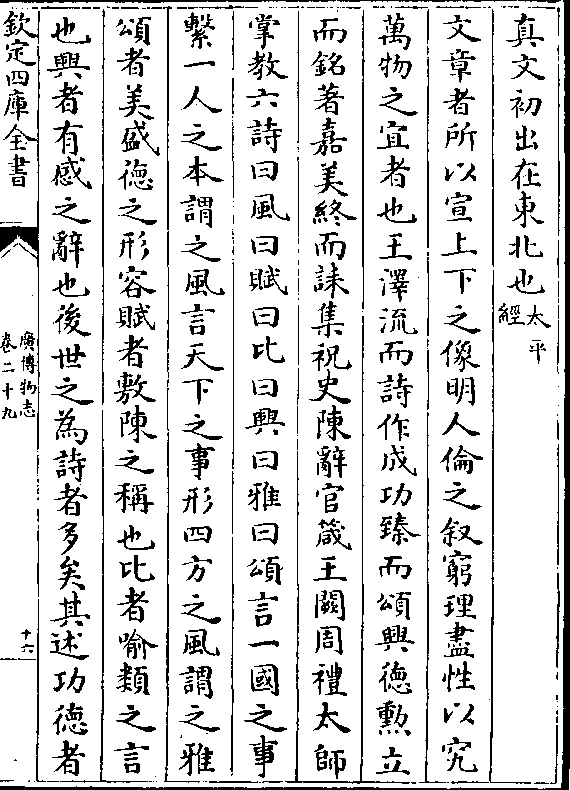 真文初出在東北也太平經
文章者所以宣上下之像明人倫之叙窮理盡性以究
萬物之宜者也王澤流而詩作成功臻而頌興德勲立
而銘著嘉美終而誄集祝史陳辭官箴王闕周禮太師
掌教六詩曰風曰賦曰比曰興曰雅曰頌言一國之事
繫一人之本謂之風言天下之事形四方之風謂之雅
頌者美盛德之形容賦者敷陳之稱也比者喻類之言
也興者有感之辭也後世之為詩者多矣其述功德者
欽定四庫全書
廣博物志
卷二十九
十六